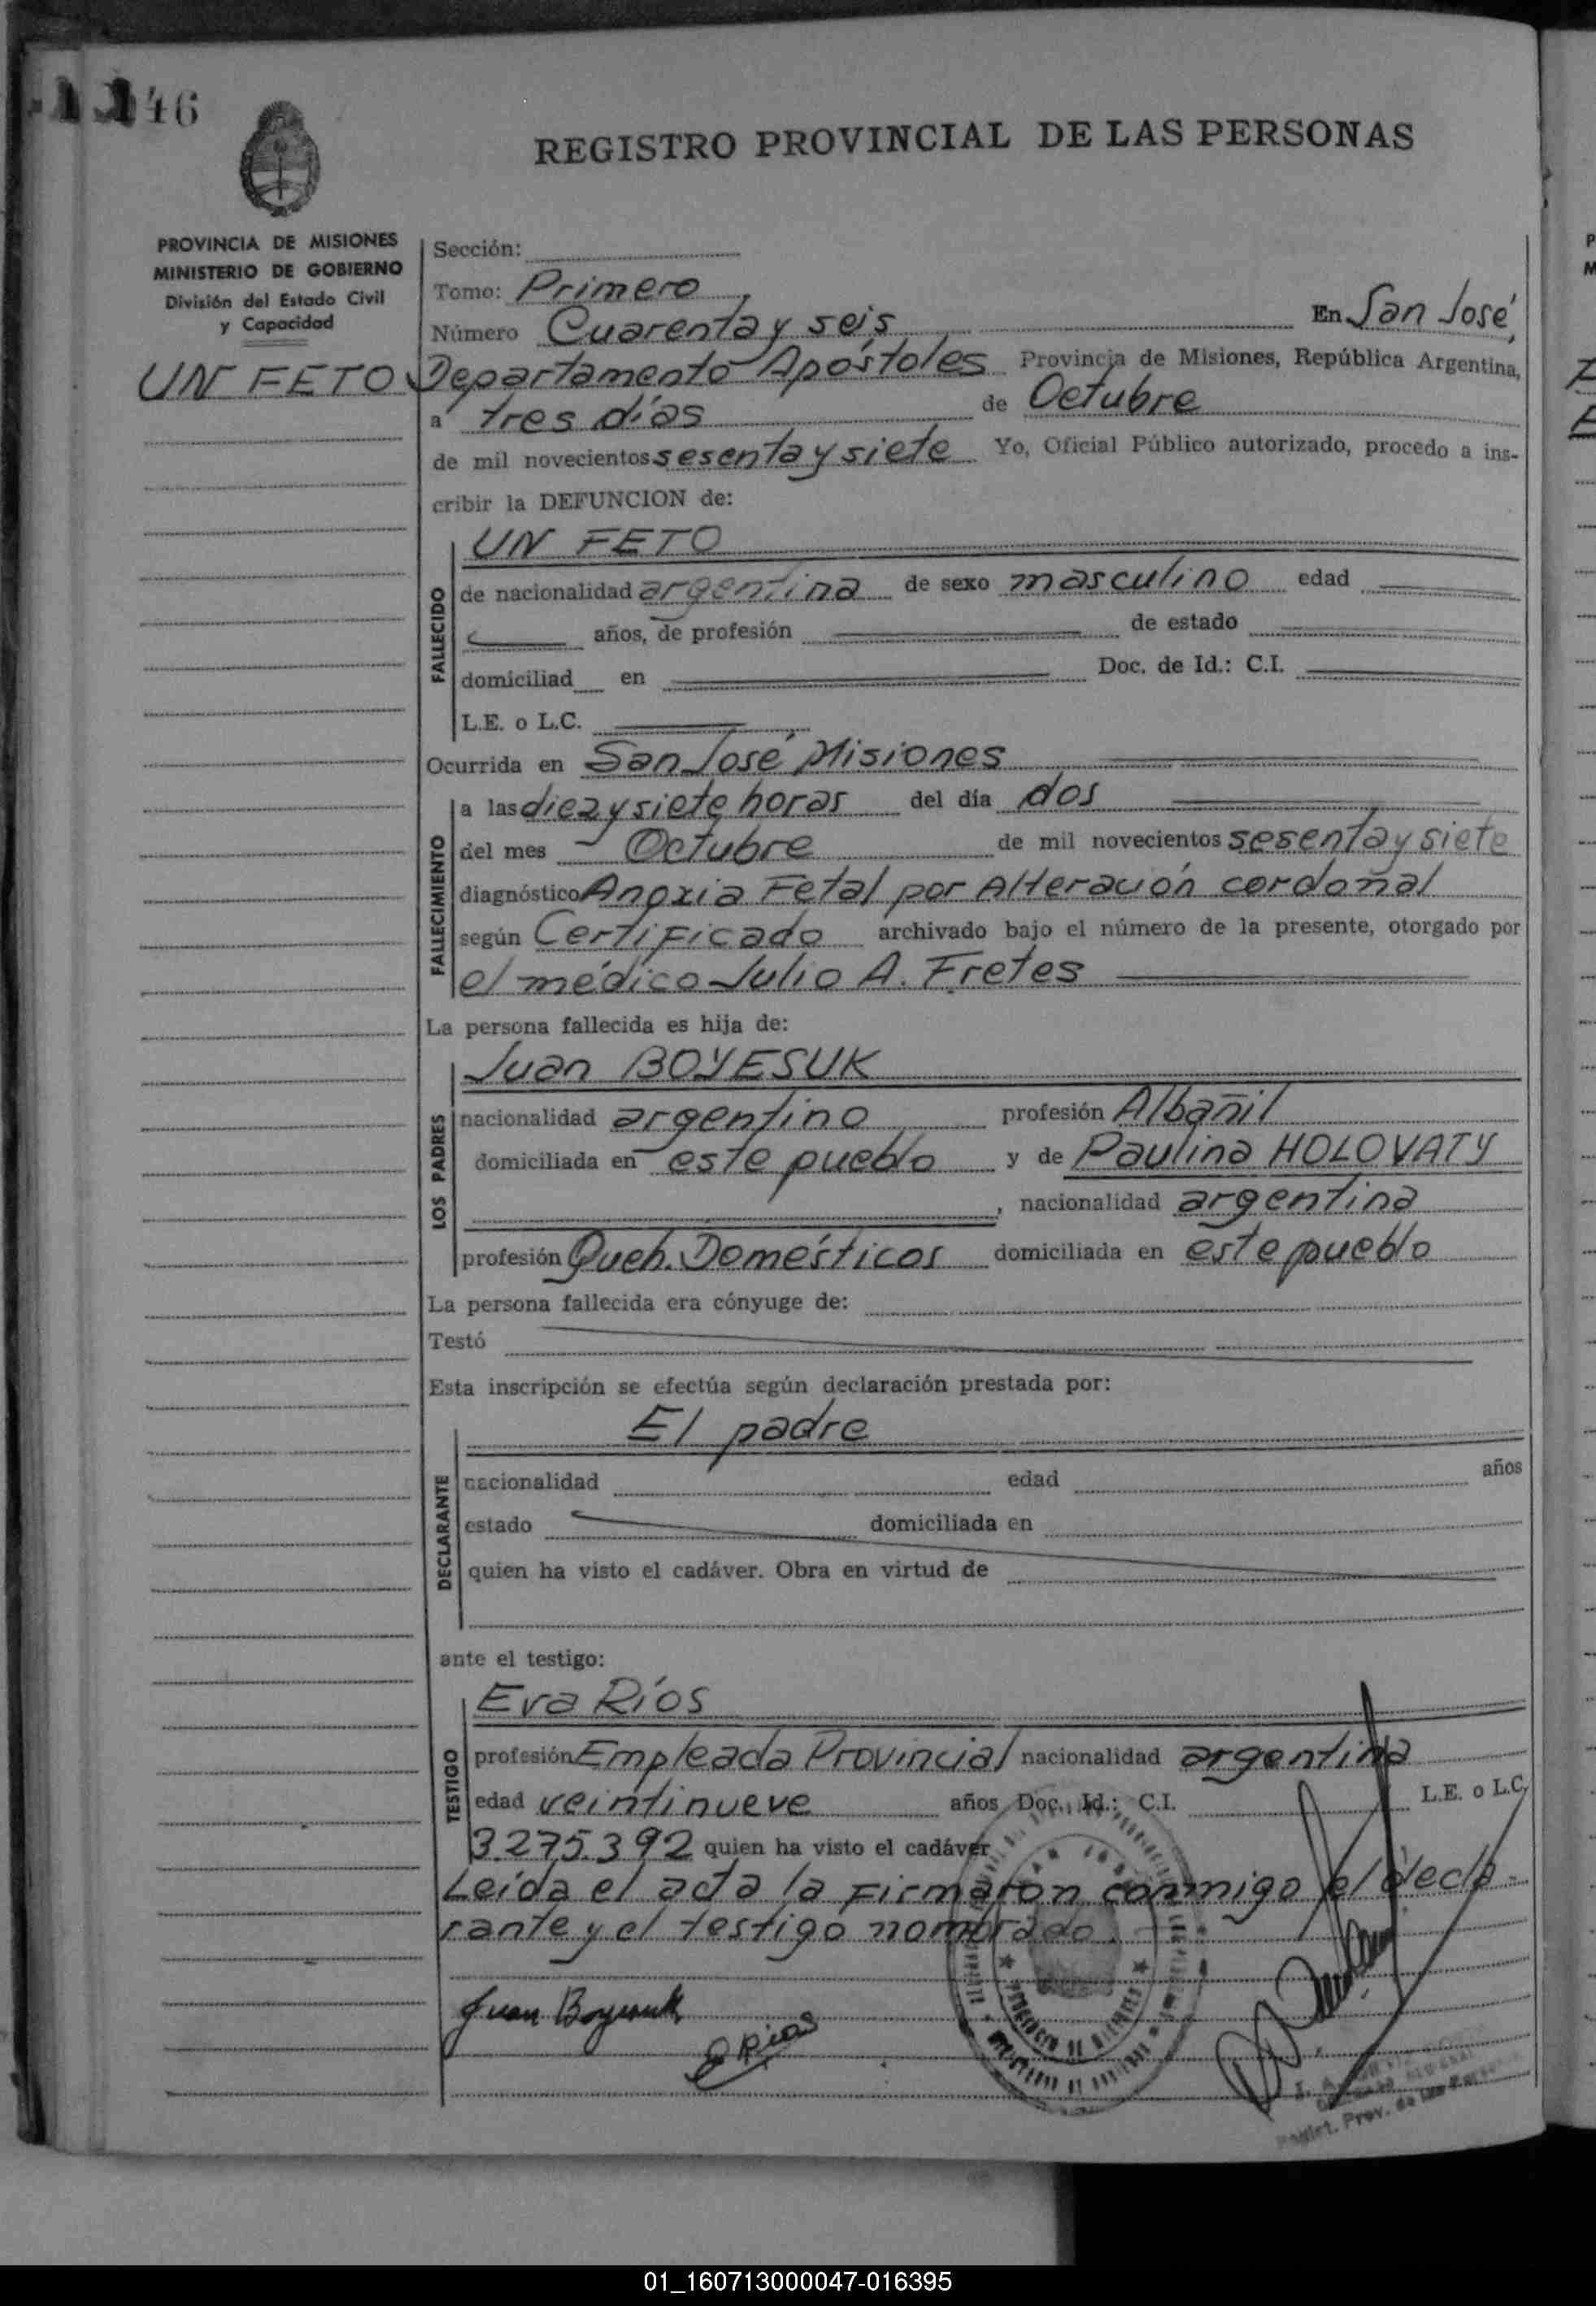 46
REGISTRO PROVINCIAL DE LAS PERSONAS
PROVINCIA DE MISIONES
MINISTERIO DE GOBIERNO
División del Estado Civil
y Capacidad
UN FETO
Sección:
Tomo: Primero
Número Cuarenta y seis En San José,
Departamento Apóstoles Provincia de Misiones, República Argentina,
a tres días de Octubre
de mil novecientos sesenta y siete Yo, Oficial Público autorizado, procedo a ins-
cribir la DEFUNCION de:
FALLECIDO
UN FETO
de nacionalidad argentina de sexo masculino edad
años, de profesión de estado
domiciliad en Doc. de Id.: C.I.
L.E. o L.C.
Ocurrida en San José Misiones
FALLECIMIENTO
a las diez y siete horas del día dos
del mes Octubre de mil novecientos sesenta y siete
diagnóstico Anoxia Fetal por Alteración cordonal
según Certificado archivado bajo el número de la presente, otorgado por
el médico Julio A. Fretes
La persona fallecida es hija de:
LOS PADRES
Juan BOYESUK
nacionalidad argentino profesión Albañil
domiciliada en este pueblo y de Paulina HOLOVATY
, nacionalidad argentina
profesión Queh. Domésticos domiciliada en este pueblo
La persona fallecida era cónyuge de:
Testó
Esta inscripción se efectúa según declaración prestada por:
DECLARANTE
El padre
nacionalidad edad años
estado domiciliada en
quien ha visto el cadáver. Obra en virtud de
ante el testigo:
TESTIGO
Eva Ríos
profesión Empleada Provincial nacionalidad argentina
edad veintinueve años, Doc. Id.: C.I. L.E. o L.C.
3.275.392 quien ha visto el cadáver
Leída el acta la firmaron conmigo el decla-
rante y el testigo nombrado.
Juan Boyesuk
E Ríos
Regist. Prov. de las
01_160713000047-016395